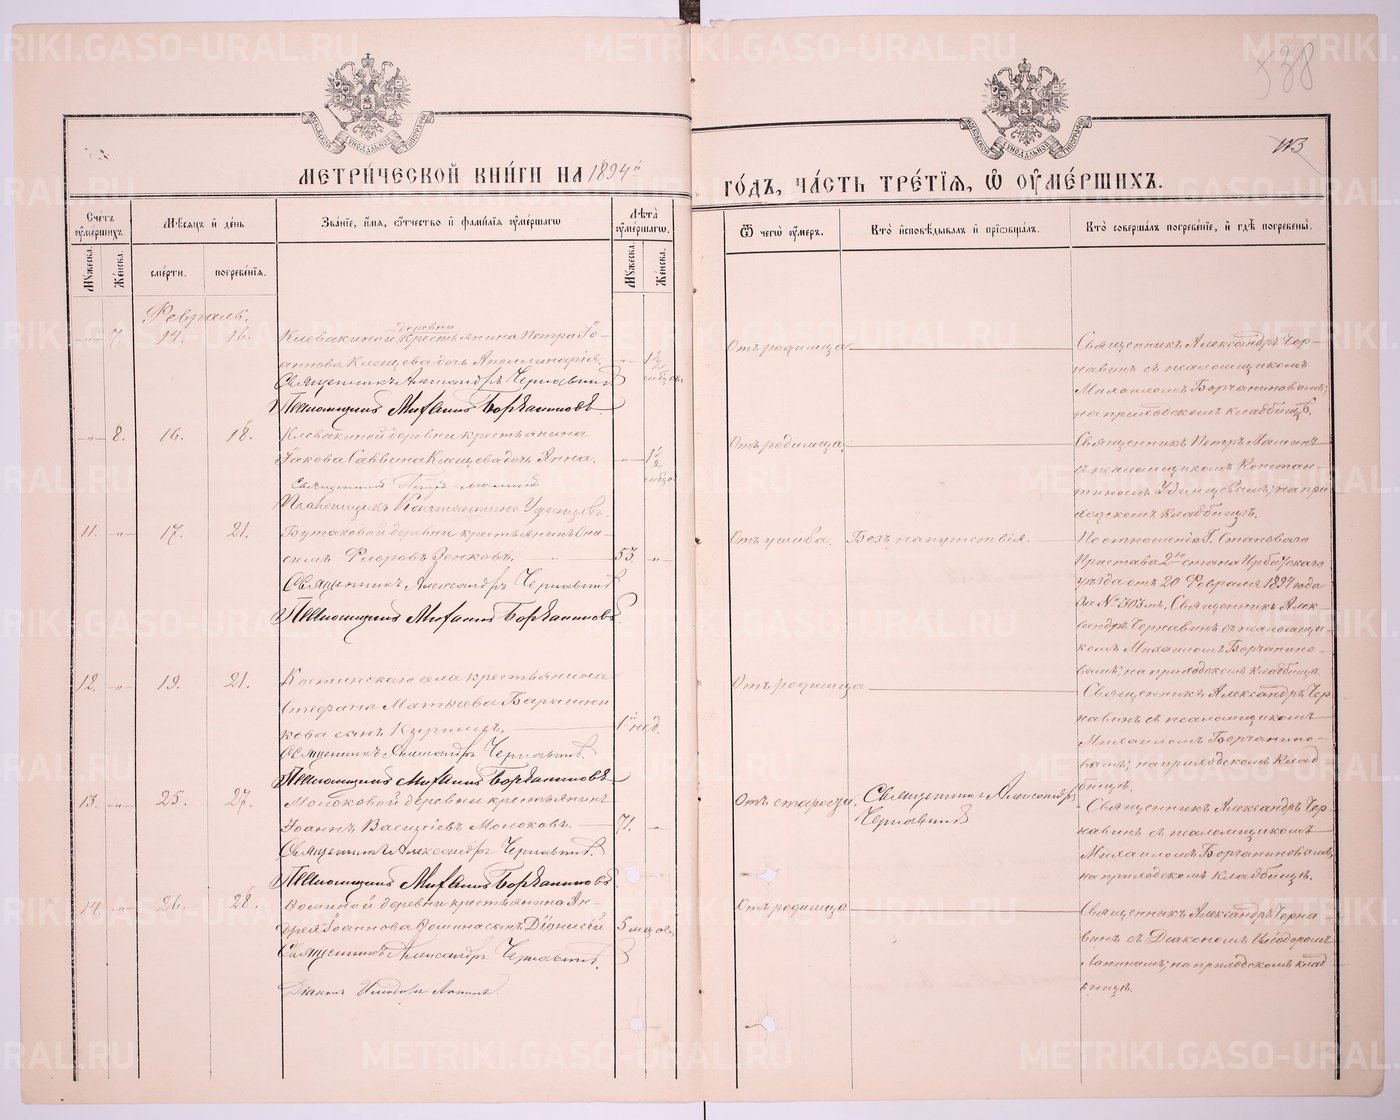 МЕТРИ́ЧЕСКОЙ КНИ́ГИ НА 1894й
ГО́ДЪ, ЧА́СТЬ ТРЕ́ТІЯ, Ѡ ОУМЕ́РШИХЪ.
538
113
Сче́тъ оуме́ршихъ.
Мѣ́сяцъ и де́нь
Зва́ніе, и́мя, ѻ҆́тчество и фами́лїя оуме́ршагѡ
Лѣ́та оуме́ршагѡ.
Ѿ чегѡ̀ оу́меръ.
Кто̀ и҆сповѣ́дывалъ и прїѡбща́лъ.
Кто̀ соверша́лъ погребе́ніе, и гдѣ̀ погребены̀.
Му́жеска.
Же́нска.
сме́рти.
погребе́нїя.
Му́жеска.
Же́нска.
Февраль.
„ 7. 14. 16.
деревни
Клевакиной крестьянина Петра Іо-
аннова Клещева дочь Апполинарія
„ 1½ мѣсяц.
Священникъ Александръ Чернавинъ
Псаломщикъ Михаилъ Борчаниновъ
Отъ родимца
Священникъ Александръ Чер-
навинъ съ псаломщикомъ
Михаиломъ Борчаниновымъ;
на приходскомъ кладбищѣ.
„ 8. 16. 18.
Клевакиной деревни крестьянина
Іакова Саввина Клещева дочь Анна.
„ 1½ мѣсяц.
Священникъ Петръ Машинъ
Псаломщикъ Константинъ Удинцевъ.
Отъ родимца.
Священникъ Петръ Машинъ
съ псаломщикомъ Констан-
тиномъ Удинцевымъ; на при-
ходскомъ кладбищѣ.
11. „ 17. 21.
Бутаковой деревни крестьянинъ Они-
симъ Флоровъ Зенковъ.
53. „
Священникъ Александръ Чернавинъ
Псаломщикъ Михаилъ Борчаниновъ.
Отъ ушиба.
Безъ напутствія.
Постношенію Г. Становаго
Пристава 2го стана Ирбитскаго
уѣзда отъ 20 Февраля 1894 года
за № 303мъ, Священникъ Алек-
сандръ Чернавинъ съ псаломщи-
комъ Михаиломъ Борчанино-
вымъ; на приходскомъ кладбищѣ.
12. „ 19. 21.
Костинскаго села крестьянина
Стефана Матѳіева Барышни-
кова сынъ Кириллъ.
1й нед.
Священникъ Александръ Чернавинъ.
Псаломщикъ Михаилъ Борчаниновъ
Отъ родимца
Священникъ Александръ Чер-
навинъ съ псаломщикомъ
Михаиломъ Борчанино-
вымъ; на приходскомъ клад-
бищѣ.
13. „ 25. 27.
Молоковой деревни крестьянинъ
Іоаннъ Васильевъ Молоковъ.
71. „
Священникъ Александръ Чернавинъ.
Псаломщикъ Михаилъ Борчаниновъ
Отъ старости.
Священникъ Александръ
Чернавинъ
Священникъ Александръ Чер-
навинъ съ псаломщикомъ
Михаиломъ Борчаниновымъ;
на приходскомъ кладбищѣ.
14. „ 26. 28.
Ѳоминой деревни крестьянина Ан-
дрея Іоаннова Ѳомина сынъ Діонисій
5 мѣсяцовъ
Священникъ Александръ Чернавинъ.
Діаконъ Исидоръ Лапинъ.
Отъ родимца
Священникъ Александръ Черна-
винъ съ Діакономъ Исидоромъ
Лапинымъ; на приходскомъ клад-
бищѣ.
METRIKI.GASO-URAL.RU